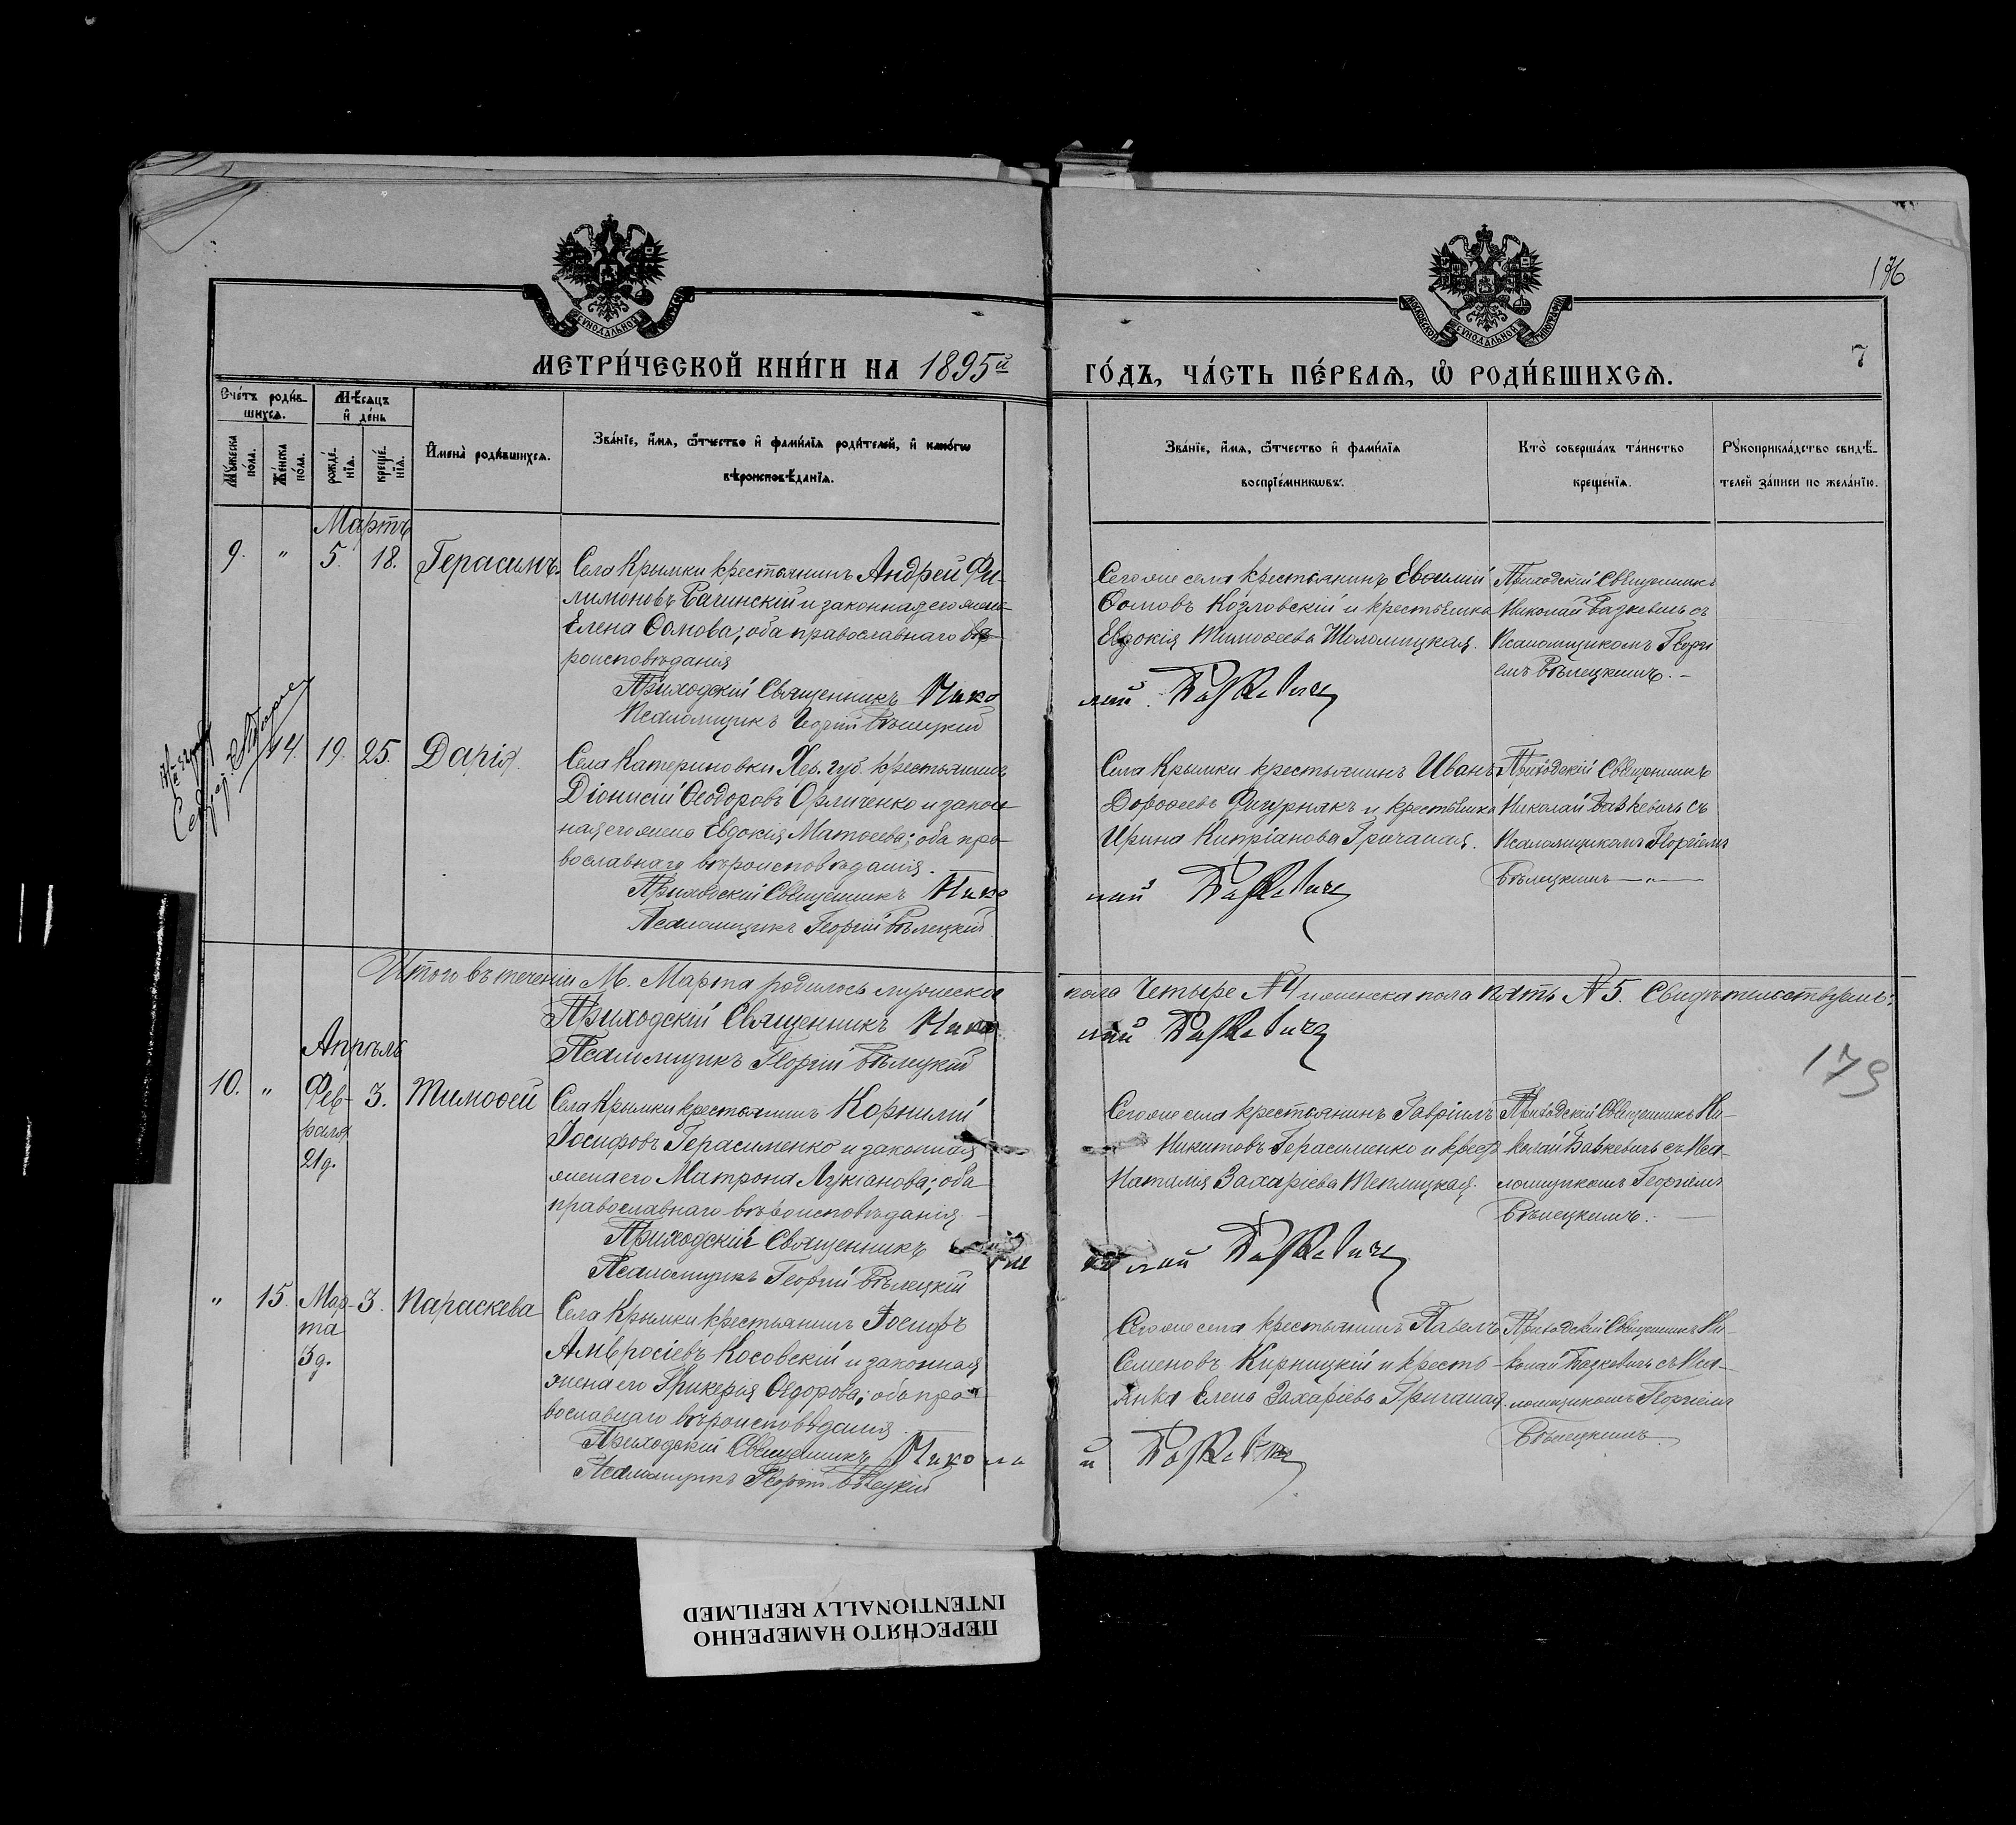 176
7
МЕТРИ́ЧЕСКОЙ КНИ́ГИ НА 1895й
ГО́ДЪ, ЧА́СТЬ ПЕ́РВАЯ, Ѿ РОДИ́ВШИХСЯ.
МОСКОВСКОЙ СѴНОДАЛЬНОЙ ТИПОГРАФІИ
Сче́тъ роди́в-
шихся.
Мѣ́сяцъ
и҆ де́нь
Мꙋ́жеска по́ла.
Же́нска по́ла.
рожде́нїя.
креще́нїя.
И҆мена̀ роди́вшихся.
Зва́нїе, и҆́мя, ѻ҆́тчество и҆ фами́лїя роди́телей, и҆ како́гѡ
вѣроисповѣ́данїя.
Зва́нїе, и҆́мя, ѻ҆́тчество и҆ фами́лїя
воспрїе́мникѡвъ.
Кто̀ соверша́лъ та́инство
креще́нїя.
Рꙋкоприкла́дство свидѣ́-
телей за́писи по жела́нїю.
Мартъ
9. " 5. 18. Герасимъ.
Села Крымки крестьянинъ Андрей Фи-
лимоновъ Бачинскій и законная его жена
Елена Ѳомова; оба православнаго вѣ-
роисповѣданія
Приходскій Священникъ Нико
Псаломщикъ Георгій Бѣлецкій
Сего же села крестьянинъ Евѳимій
Ѳомовъ Козловскій и крестьянка
Евдокія Тимоѳеева Шоломицкая.
лай
Приходскій Священникъ
Николай Базкевичъ съ
Псаломщикомъ Георгі
емъ Бѣлецкимъ. -
14. 19. 25. Дарія.
Села Катериновки Хер. губ. крестьянинъ
Діонисій Ѳеодоровъ Орличенко и закон-
ная его жена Евдокія Матѳеева; оба пра-
вославнаго вѣроисповѣданія.
Приходскій Священникъ Нико
Псаломщикъ Георгій Бѣлецкій
Села Крымки крестьянинъ Иванъ
Дороѳеевъ Фигурнякъ и крестьянка
Ирина Кипріанова Гричаная.
лай
Приходскій Священникъ
Николай Базкевичъ съ
Псаломщикомъ Георгіемъ
Бѣлецкимъ — " —
Итого въ теченіи М. Марта родилось мужеска
пола Четыре № 4 и женска пола пять № 5. Свидѣтельствуемъ:
Приходскій Священникъ Нико
лай
Псаломщикъ Георгій Бѣлецкій
179
Апрѣль
10. " Фев-
раля
21 д. 3. Тимоѳей
Села Крымки крестьянинъ Корнилій
Іосифовъ Герасименко и законная
жена его Матрона Лукіанова; оба
православнаго вѣроисповѣданія.
Приходскій Священникъ
Псаломщикъ Георгій Бѣлецкій
Сего же села крестьянинъ Гавріилъ
Никитовъ Герасименко и крест.
Наталія Захаріева Теплицкая.
лай
Приходскій Священникъ Ни-
колай Базкевичъ съ Пса-
ломщикомъ Георгіемъ
Бѣлецкимъ. —
" 15. Мар-
та
3 д. 3. Параскева
Села Крымки крестьянинъ Іосифъ
Амвросіевъ Косовскій и законная
жена его Гликерія Ѳедорова; оба пра-
вославнаго вѣроисповѣданія.
Приходскій Священникъ Никола
Псаломщикъ Георгій Бѣлецкій
Сего же села крестьянинъ Павелъ
Семеновъ Кирницкій и кресть-
янка Елена Захаріева Гричаная.
й
Приходскій Священникъ Ни-
колай Базкевичъ съ Пса-
ломщикомъ Георгіемъ
Бѣлецкимъ.
ПЕРЕСНЯТО НАМЕРЕННО
INTENTIONALLY REFILMED